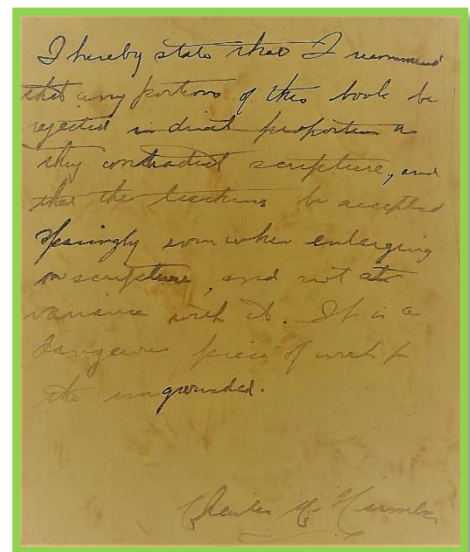 I hereby state that I recommend
that any portions of this book be
rejected in direct proportion as
they contradict scripture, and
that the teachings be accepted
sparingly even when enlarging
on scripture, and not at
variance with it. It is a
dangerous piece of work for
the ungrounded.
Charles